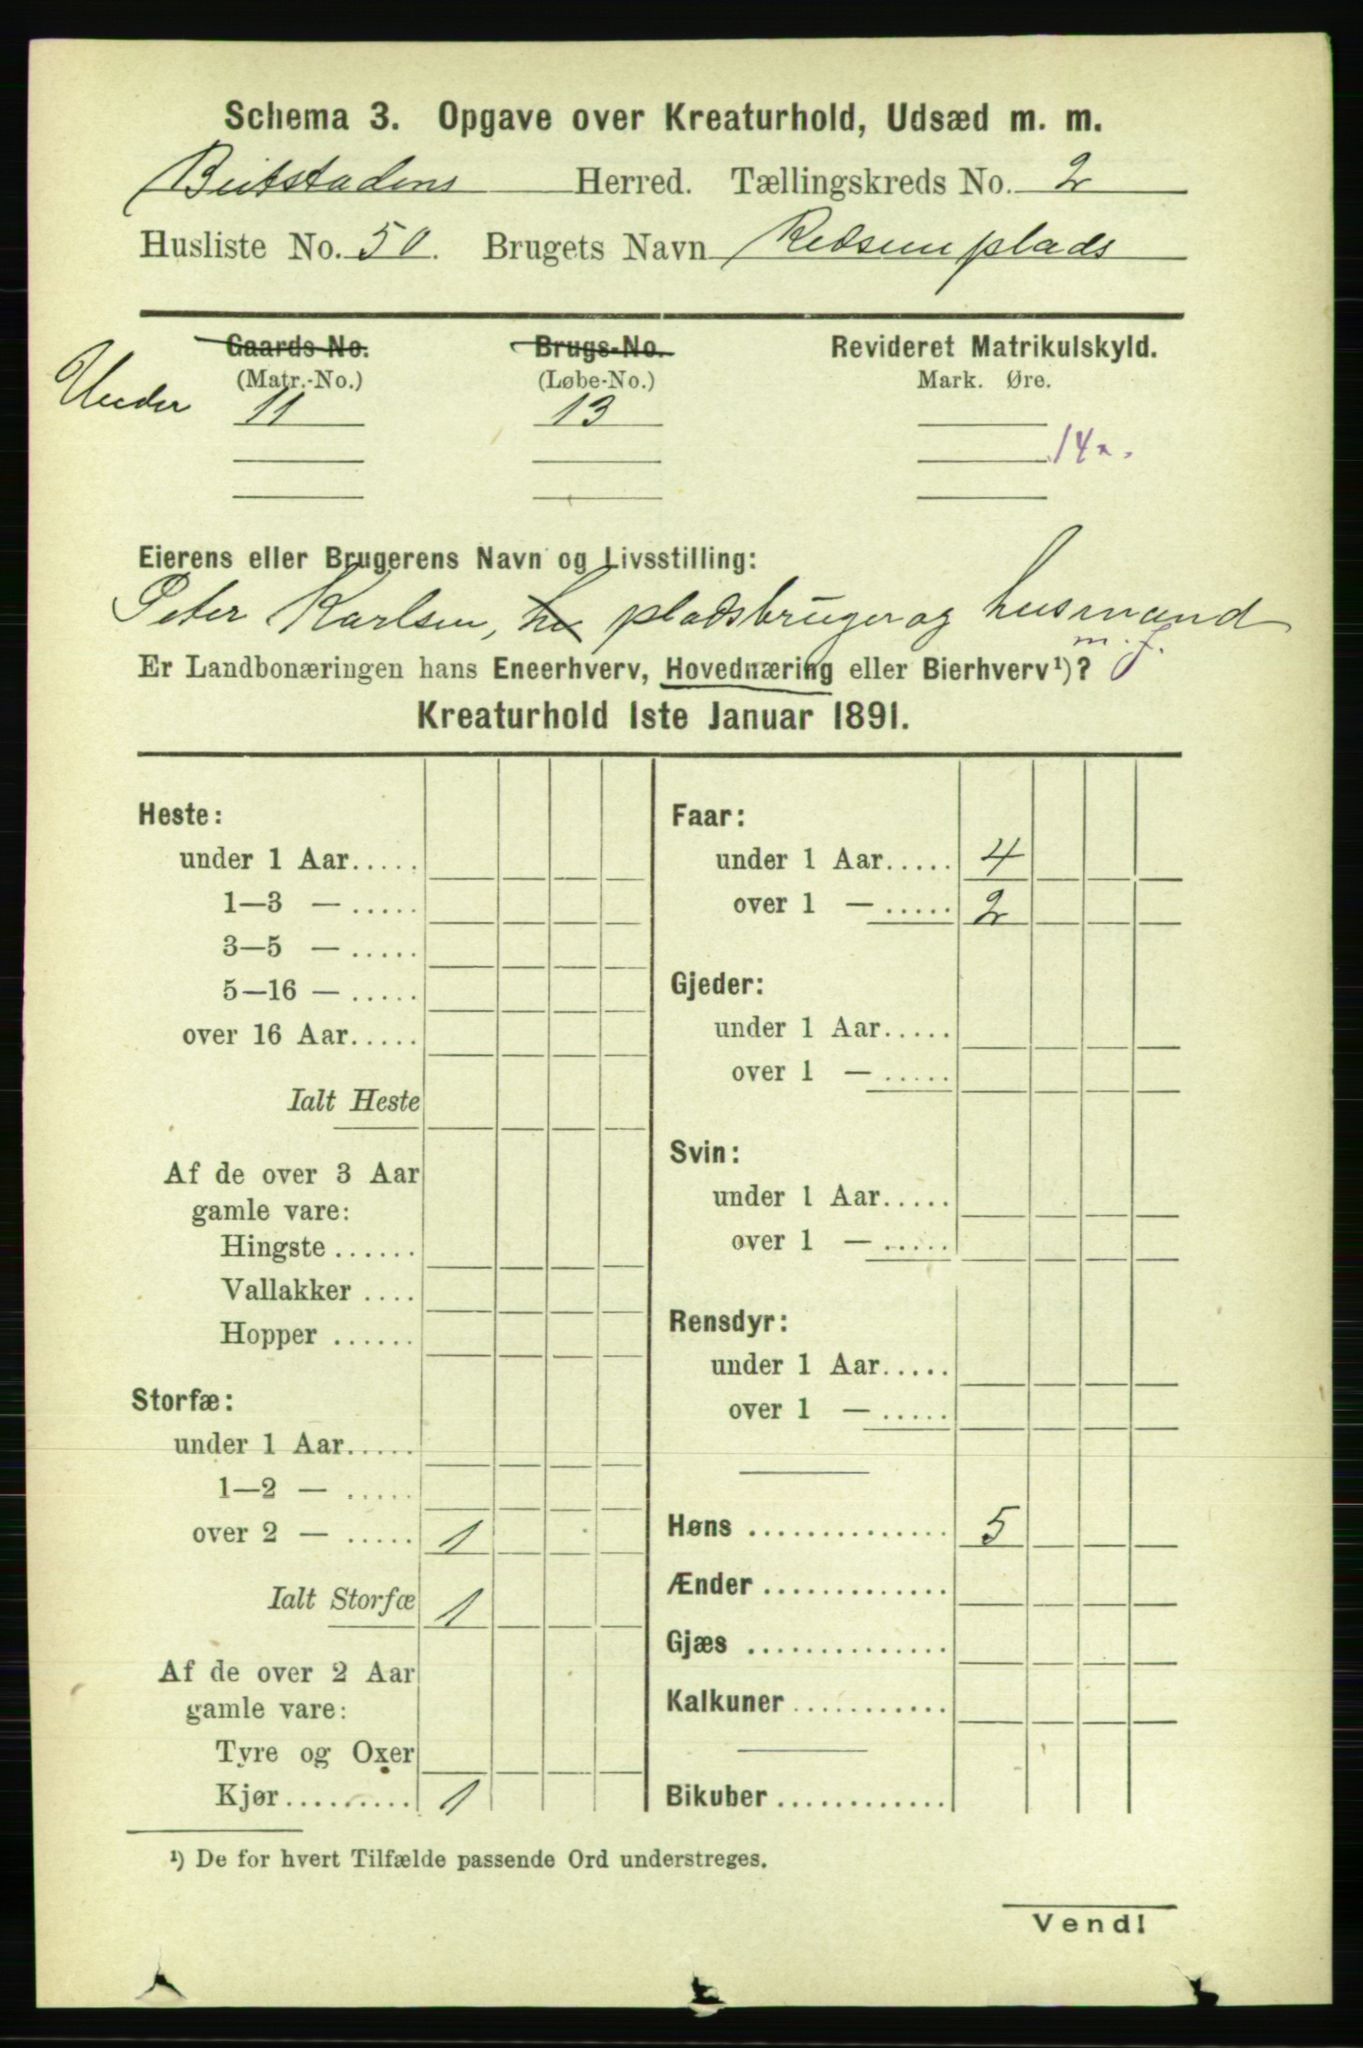 Schema 3. Opgave over Kreaturhold, Udsæd m. m.
Beitstadens Herred. Tællingskreds No. 2
Husliste No. 50. Brugets Navn plads
Gaards-No. Brugs-No. Revideret Matrikulskyld.
(Matr.-No.) (Løbe-No.) Mark. Øre.
Under 11 13
14
Eierens eller Brugerens Navn og Livsstilling:
Peter Karlsen, hu pladsbruger og husmand
m. j.
Er Landbonæringen hans Eneerhverv, Hovednæring eller Bierhverv¹)?
Kreaturhold 1ste Januar 1891.
Heste:
under 1 Aar.....
1—3 — .....
3—5 — .....
5—16 — .....
over 16 Aar.....
Ialt Heste
Af de over 3 Aar
gamle vare:
Hingste ......
Vallakker ....
Hopper ......
Storfæ:
under 1 Aar.....
1—2 — .....
over 2 — ..... 1
Ialt Storfæ 1
Af de over 2 Aar
gamle vare:
Tyre og Oxer
Kjør.......... 1
Faar:
under 1 Aar..... 4
over 1 — ..... 2
Gjeder:
under 1 Aar.....
over 1 — .....
Svin:
under 1 Aar.....
over 1 — .....
Rensdyr:
under 1 Aar.....
over 1 — .....
Høns .............. 5
Ænder .............
Gjæs ..............
Kalkuner ...........
Bikuber .............
¹) De for hvert Tilfælde passende Ord understreges.
Vend!